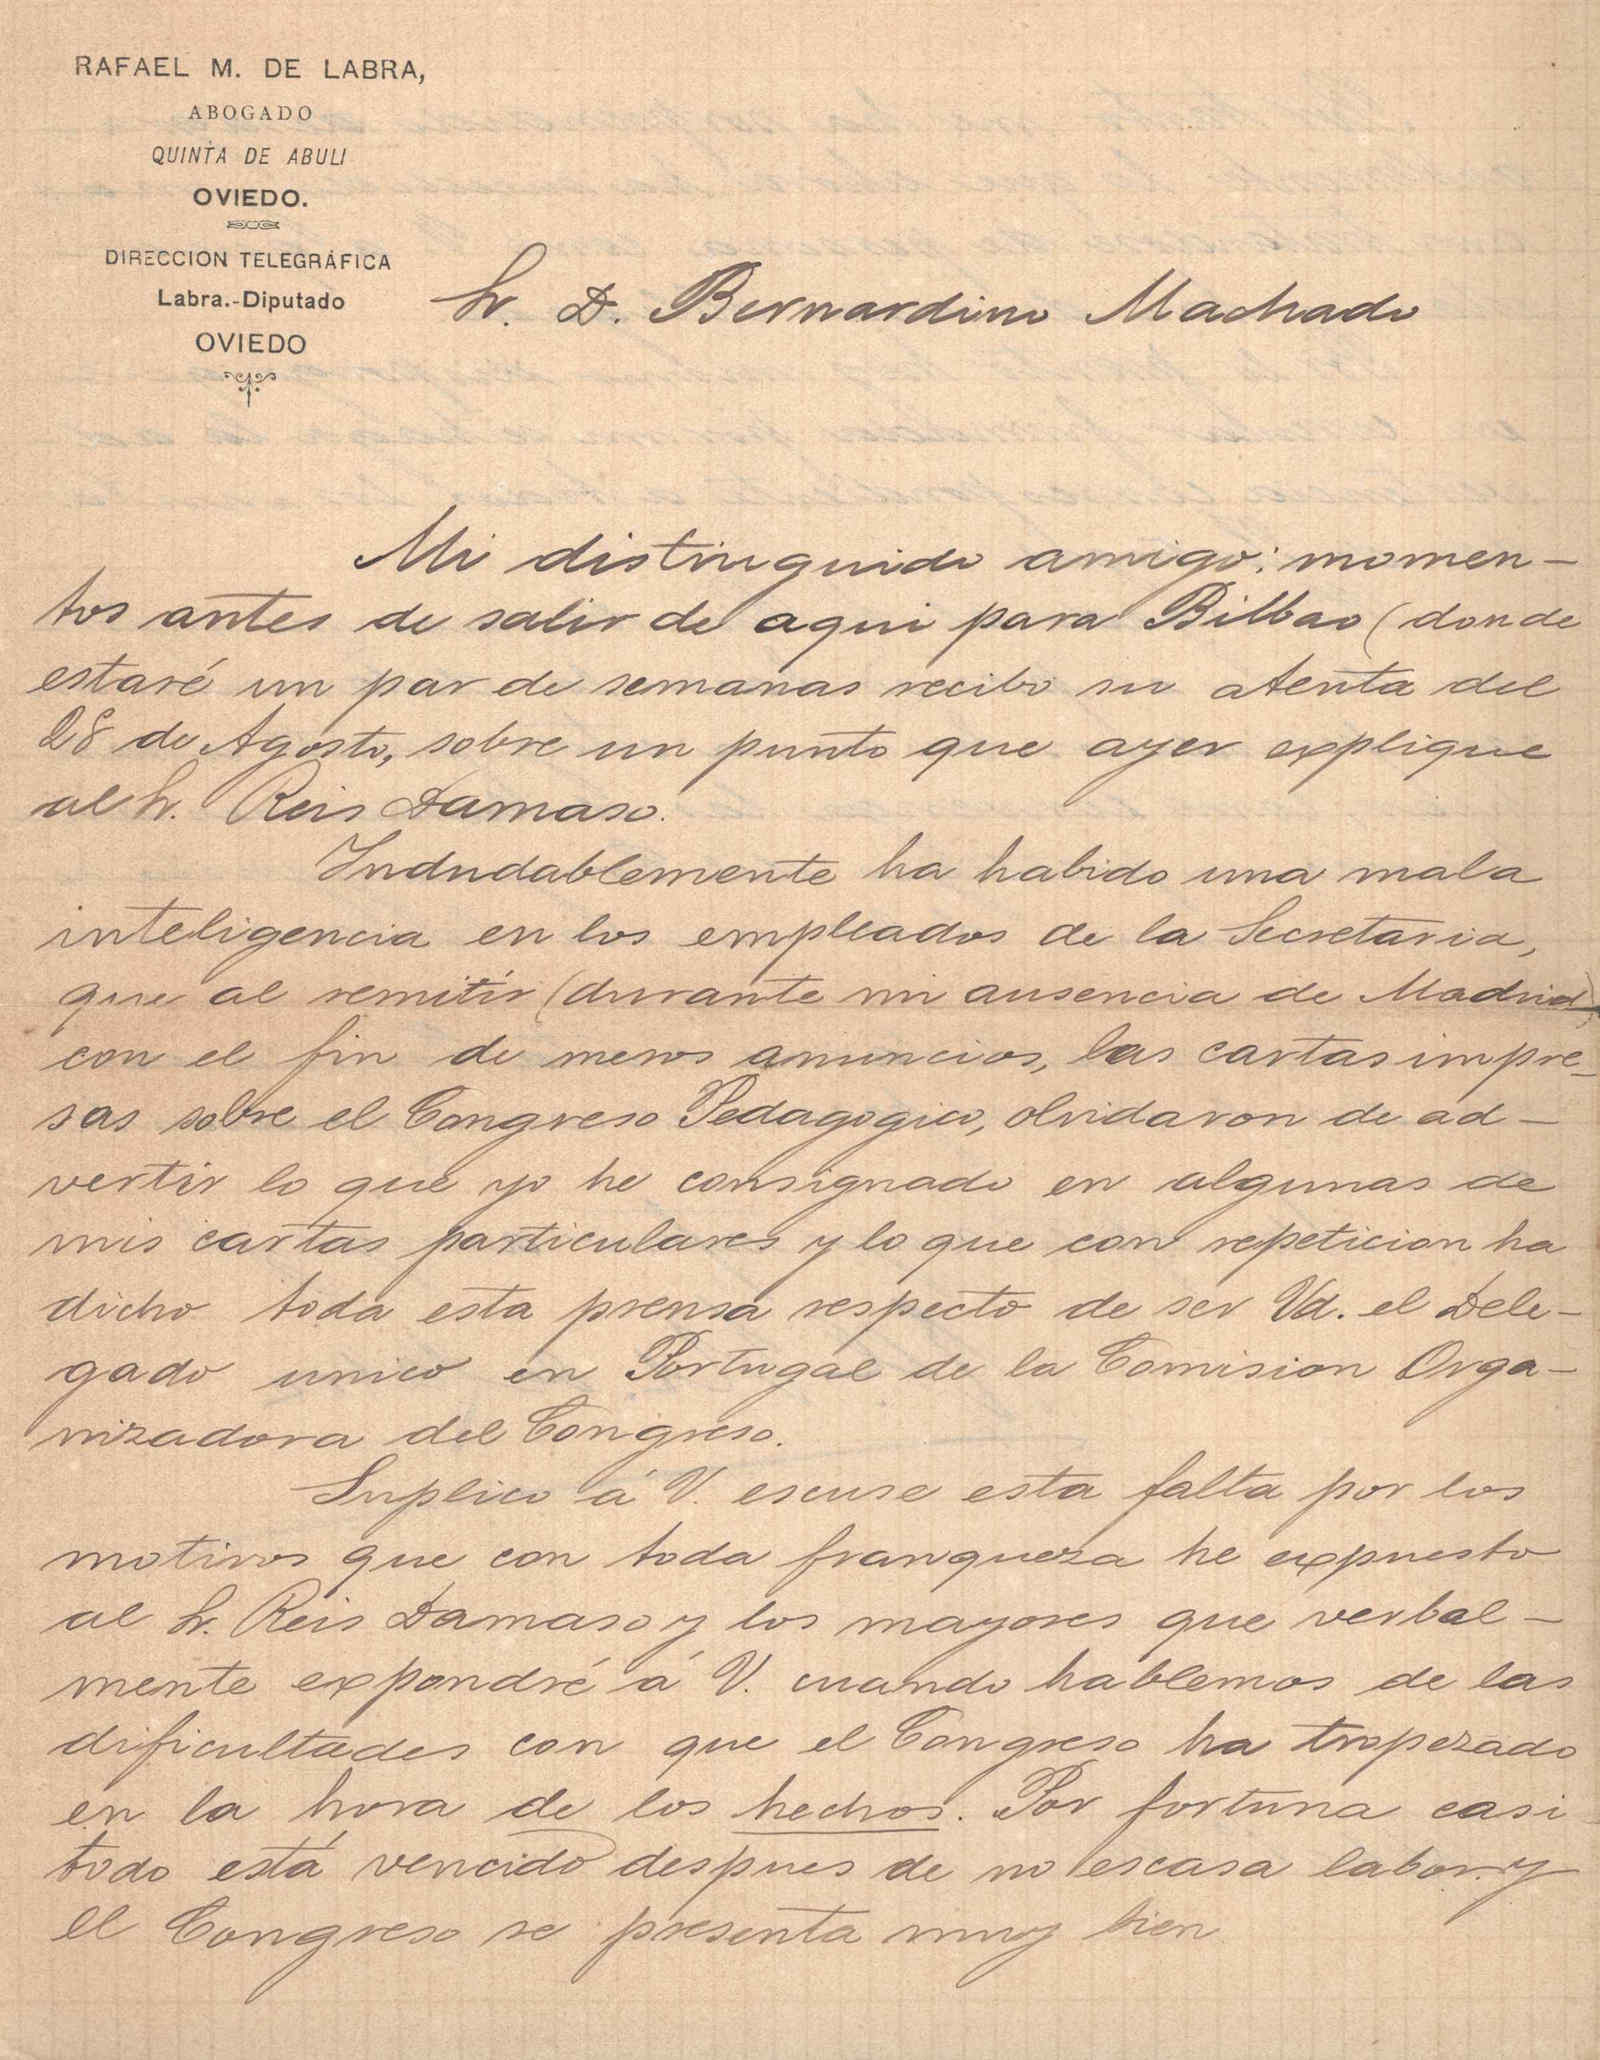 RAFAEL M. DE LABRA,
ABOGADO
QUINTA DE ABULI
OVIEDO.
DIRECCION TELEGRÁFICA
Labra.-Diputado
OVIEDO
Sr. D. Bernardino Machado
Mi distinguido amigo: momen-
tos antes de salir de aqui para Bilbao (donde
estaré un par de semanas recibo su atenta del
28 de Agosto, sobre un punto que ayer explique
al Sr. Reis Damaso.
Indudablemente ha habido una mala
inteligencia en los empleados de la Secretaria,
que al remitir (durante mi ausencia de Madrid)
con el fin de meros anuncios, las cartas impre-
sas sobre el Congreso Pedagogico, olvidaron de ad-
vertir lo que yo he consignado en algunas de
mis cartas particulares y lo que con repeticion ha
dicho toda esta prensa respecto de ser Vd. el Dele-
gado unico en Portugal de la Comision Orga-
nizadora del Congreso.
Suplico á V. escuse esta falta por los
motivos que con toda franqueza he expuesto
al Sr. Reis Damaso y los mayores que verbal-
mente expondré á V. cuando hablemos de las
dificultades con que el Congreso ha tropezado
en la hora de los hechos. Por fortuna casi
todo está vencido despues de no escasa labor y
el Congreso se presenta muy bien